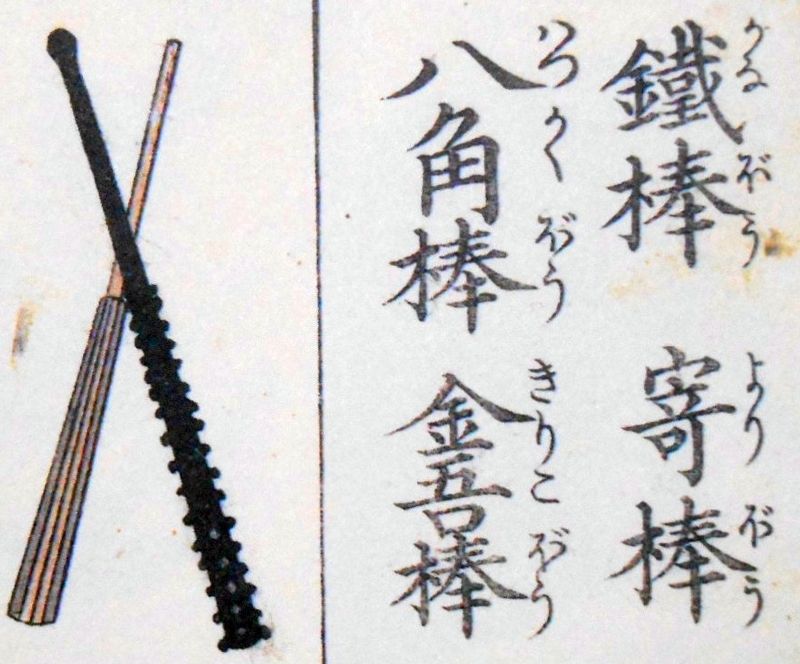 かなぼう よりぼう
鐵棒 寄棒
はつかくぼう きりこぼう
八角棒 金吾棒